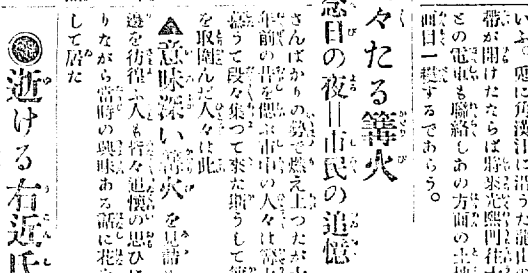 いふ
帯が開けたならば將來光熙門
との電車も聯絡しあの方面の土地
面目一變するであらう。
々たる篝火
念日の夜＝市民の追憶
さんばかりの勢で燃え上つたが
年前の昔を偲ぶ市中の人々は
慕うて段々集つて來た斯うして
を取圍んだ人々は此
▲意味深い篝火を見詰め
邊を彷徨ふ人も皆々追懷の思ひに
りながら當時の興味ある話に花
して居た
◉逝ける右近氏